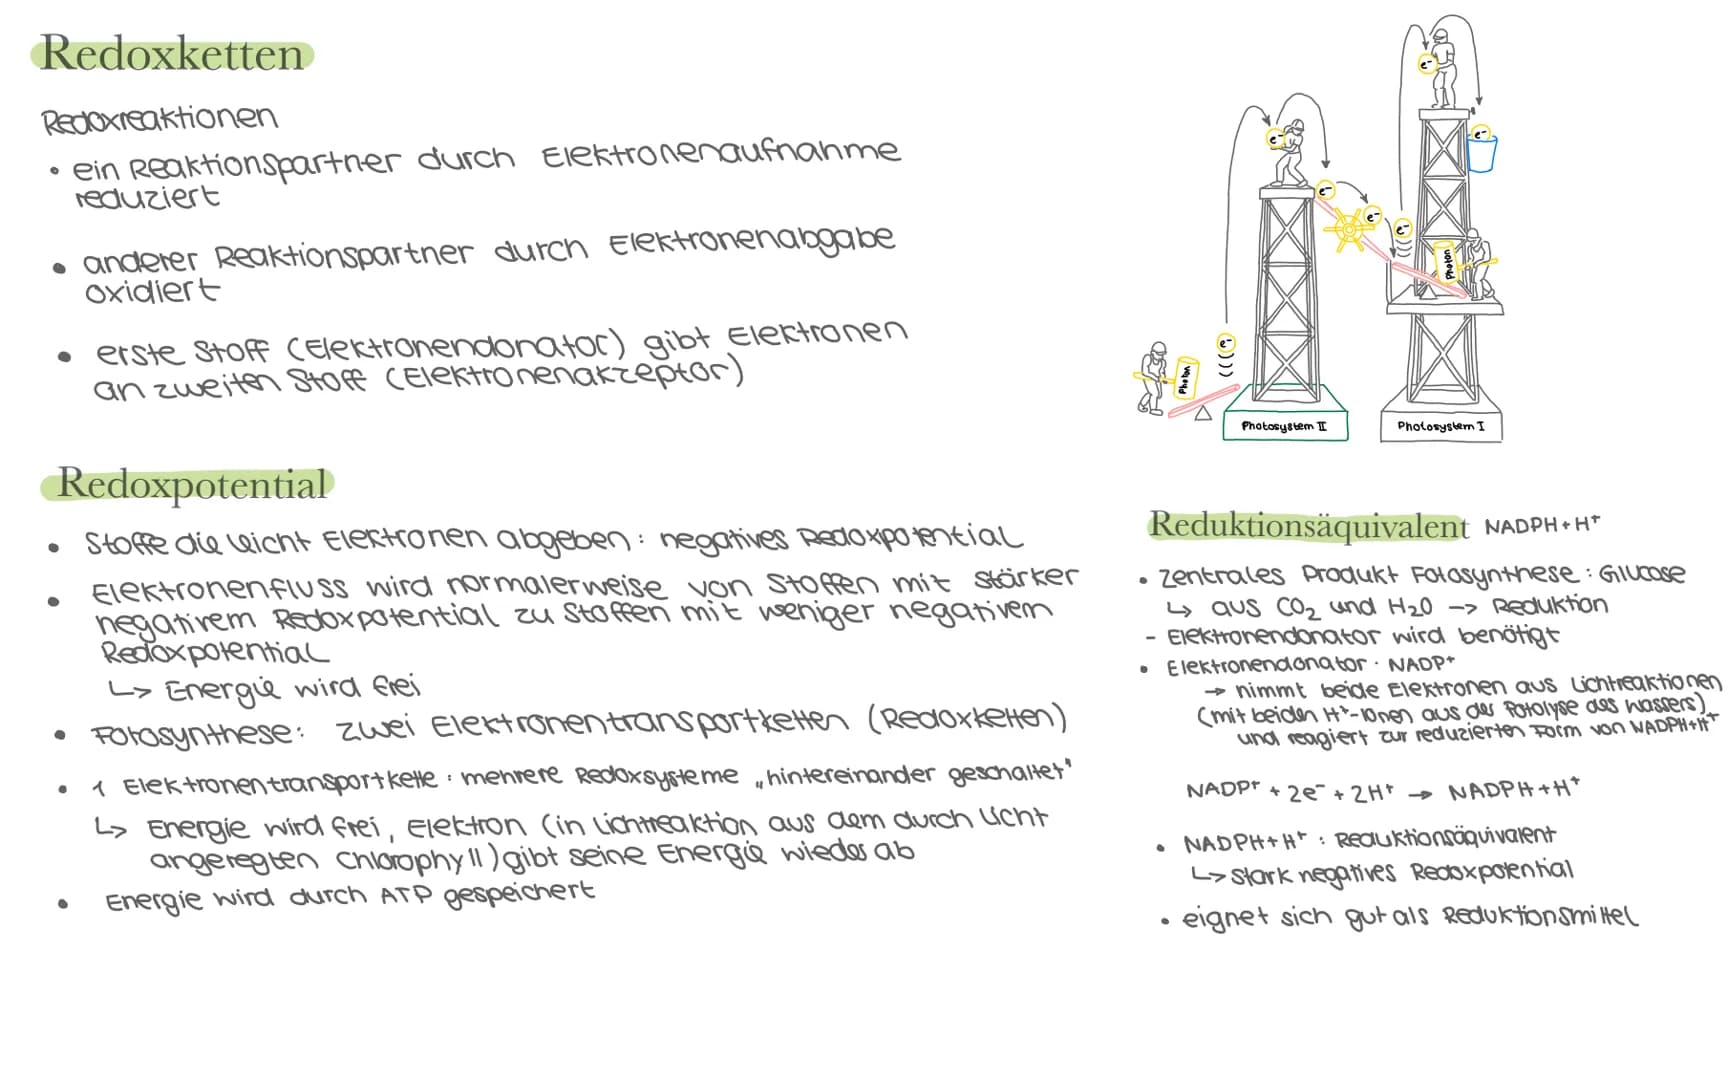 Redoxketten
Redoxreaktionen
• ein Reaktionspartner durch Elektronenaufnahme
reduziert
• anderer Reaktionspartner durch Elektronenabgabe
oxidiert
• erste Stoff (Elektronendonator) gibt Elektronen
an zweiten Stoff (Elektronenakzeptor)
Redoxpotential
• Stoffe die leicht Elektronen abgeben: negatives Redoxpotential
• Elektronenfluss wird normalerweise von Stoffen mit stärker
negativem Redoxpotential zu Stoffen mit weniger negativem
Redoxpotential
↳ Energie wird frei
• Fotosynthese: zwei Elektronentransportketten (Redoxketten)
• 1 Elektronentransportkette: mehrere Redoxsysteme „hintereinander geschaltet"
↳ Energie wird frei, Elektron (in Lichtreaktion aus dem durch Licht
angeregten Chlorophyll) gibt seine Energie wieder ab
• Energie wird durch ATP gespeichert
e-
e-
e-
e-
e-
e-
e-
e-
Photon
Photon
Photosystem II
Photosystem I
Reduktionsäquivalent NADPH+H⁺
• zentrales Produkt Fotosynthese: Glucose
↳ aus CO₂ und H₂O -> Reduktion
- Elektronendonator wird benötigt
• Elektronendonator: NADP⁺
→ nimmt beide Elektronen aus Lichtreaktionen
(mit beiden H⁺-Ionen aus der Fotolyse des Wassers)
und reagiert zur reduzierten Form von NADPH+H⁺
NADP⁺ + 2e⁻ + 2H⁺ → NADPH+H⁺
• NADPH+H⁺: Reduktionsäquivalent
↳ stark negatives Redoxpotential
• eignet sich gut als Reduktionsmittel